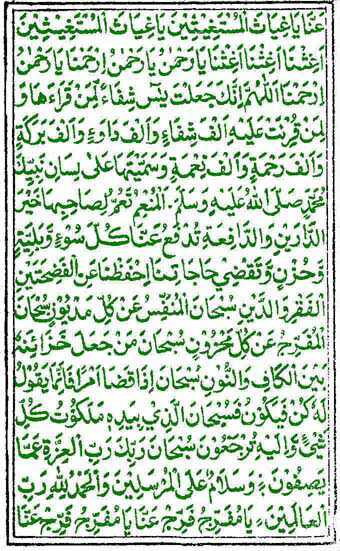 عَنَّا يَا غِيَاثَ الْمُسْتَغِيثِينَ يَا غِيَاثَ الْمُسْتَغِيثِينَ
اَغِثْنَا اَغِثْنَا اَغِثْنَا يَا رَحْمٰنُ يَا رَحْمٰنُ اِرْحَمْنَا يَا رَحْمٰنُ
اِرْحَمْنَا اَللّٰهُمَّ اِنَّكَ جَعَلْتَ يٰسٓ شِفَاءً لِمَنْ قَرَاَهَا وَ
لِمَنْ قُرِئَتْ عَلَيْهِ اَلْفَ شِفَاءٍ وَاَلْفَ دَوَاءٍ وَاَلْفَ بَرَكَةٍ
وَاَلْفَ رَحْمَةٍ وَاَلْفَ نِعْمَةٍ وَسَمَّيْتَهَا عَلٰى لِسَانِ نَبِيِّكَ
مُحَمَّدٍ صَلَّى اللّٰهُ عَلَيْهِ وَسَلَّمَ اَلْمُعِمَّةَ تَعُمُّ لِصَاحِبِهَا خَيْرَ
الدَّارَيْنِ وَالدَّافِعَةِ تَدْفَعُ عَنَّا كُلَّ سُوْءٍ وَبَلِيَّةٍ
وَحُزْنٍ وَتَقْضِي حَاجَاتِنَا اِحْفَظْنَا عَنِ الْفَضِيْحَتَيْنِ
الْفَقْرِ وَالدَّيْنِ سُبْحَانَ الْمُنَفِّسِ عَنْ كُلِّ مَدْيُوْنٍ سُبْحَانَ
الْمُفَرِّجِ عَنْ كُلِّ مَحْزُوْنٍ سُبْحَانَ مَنْ جَعَلَ خَزَائِنَهُ
بَيْنَ الْكَافِ وَالنُّوْنِ سُبْحَانَ اِذَا قَضَا اَمْرًا فَاِنَّمَا يَقُوْلُ
لَهُ كُنْ فَيَكُوْنُ فَسُبْحَانَ الَّذِيْ بِيَدِهِ مَلَكُوْتُ كُلِّ
شَيْءٍ وَاِلَيْهِ تُرْجَعُوْنَ سُبْحَانَ رَبِّكَ رَبِّ الْعِزَّةِ عَمَّا
يَصِفُوْنَ وَسَلَامٌ عَلَى الْمُرْسَلِيْنَ وَالْحَمْدُ لِلّٰهِ رَبِّ
الْعَالَمِيْنَ يَا مُفَرِّجُ فَرِّجْ عَنَّا يَا مُفَرِّجُ فَرِّجْ عَنَّا